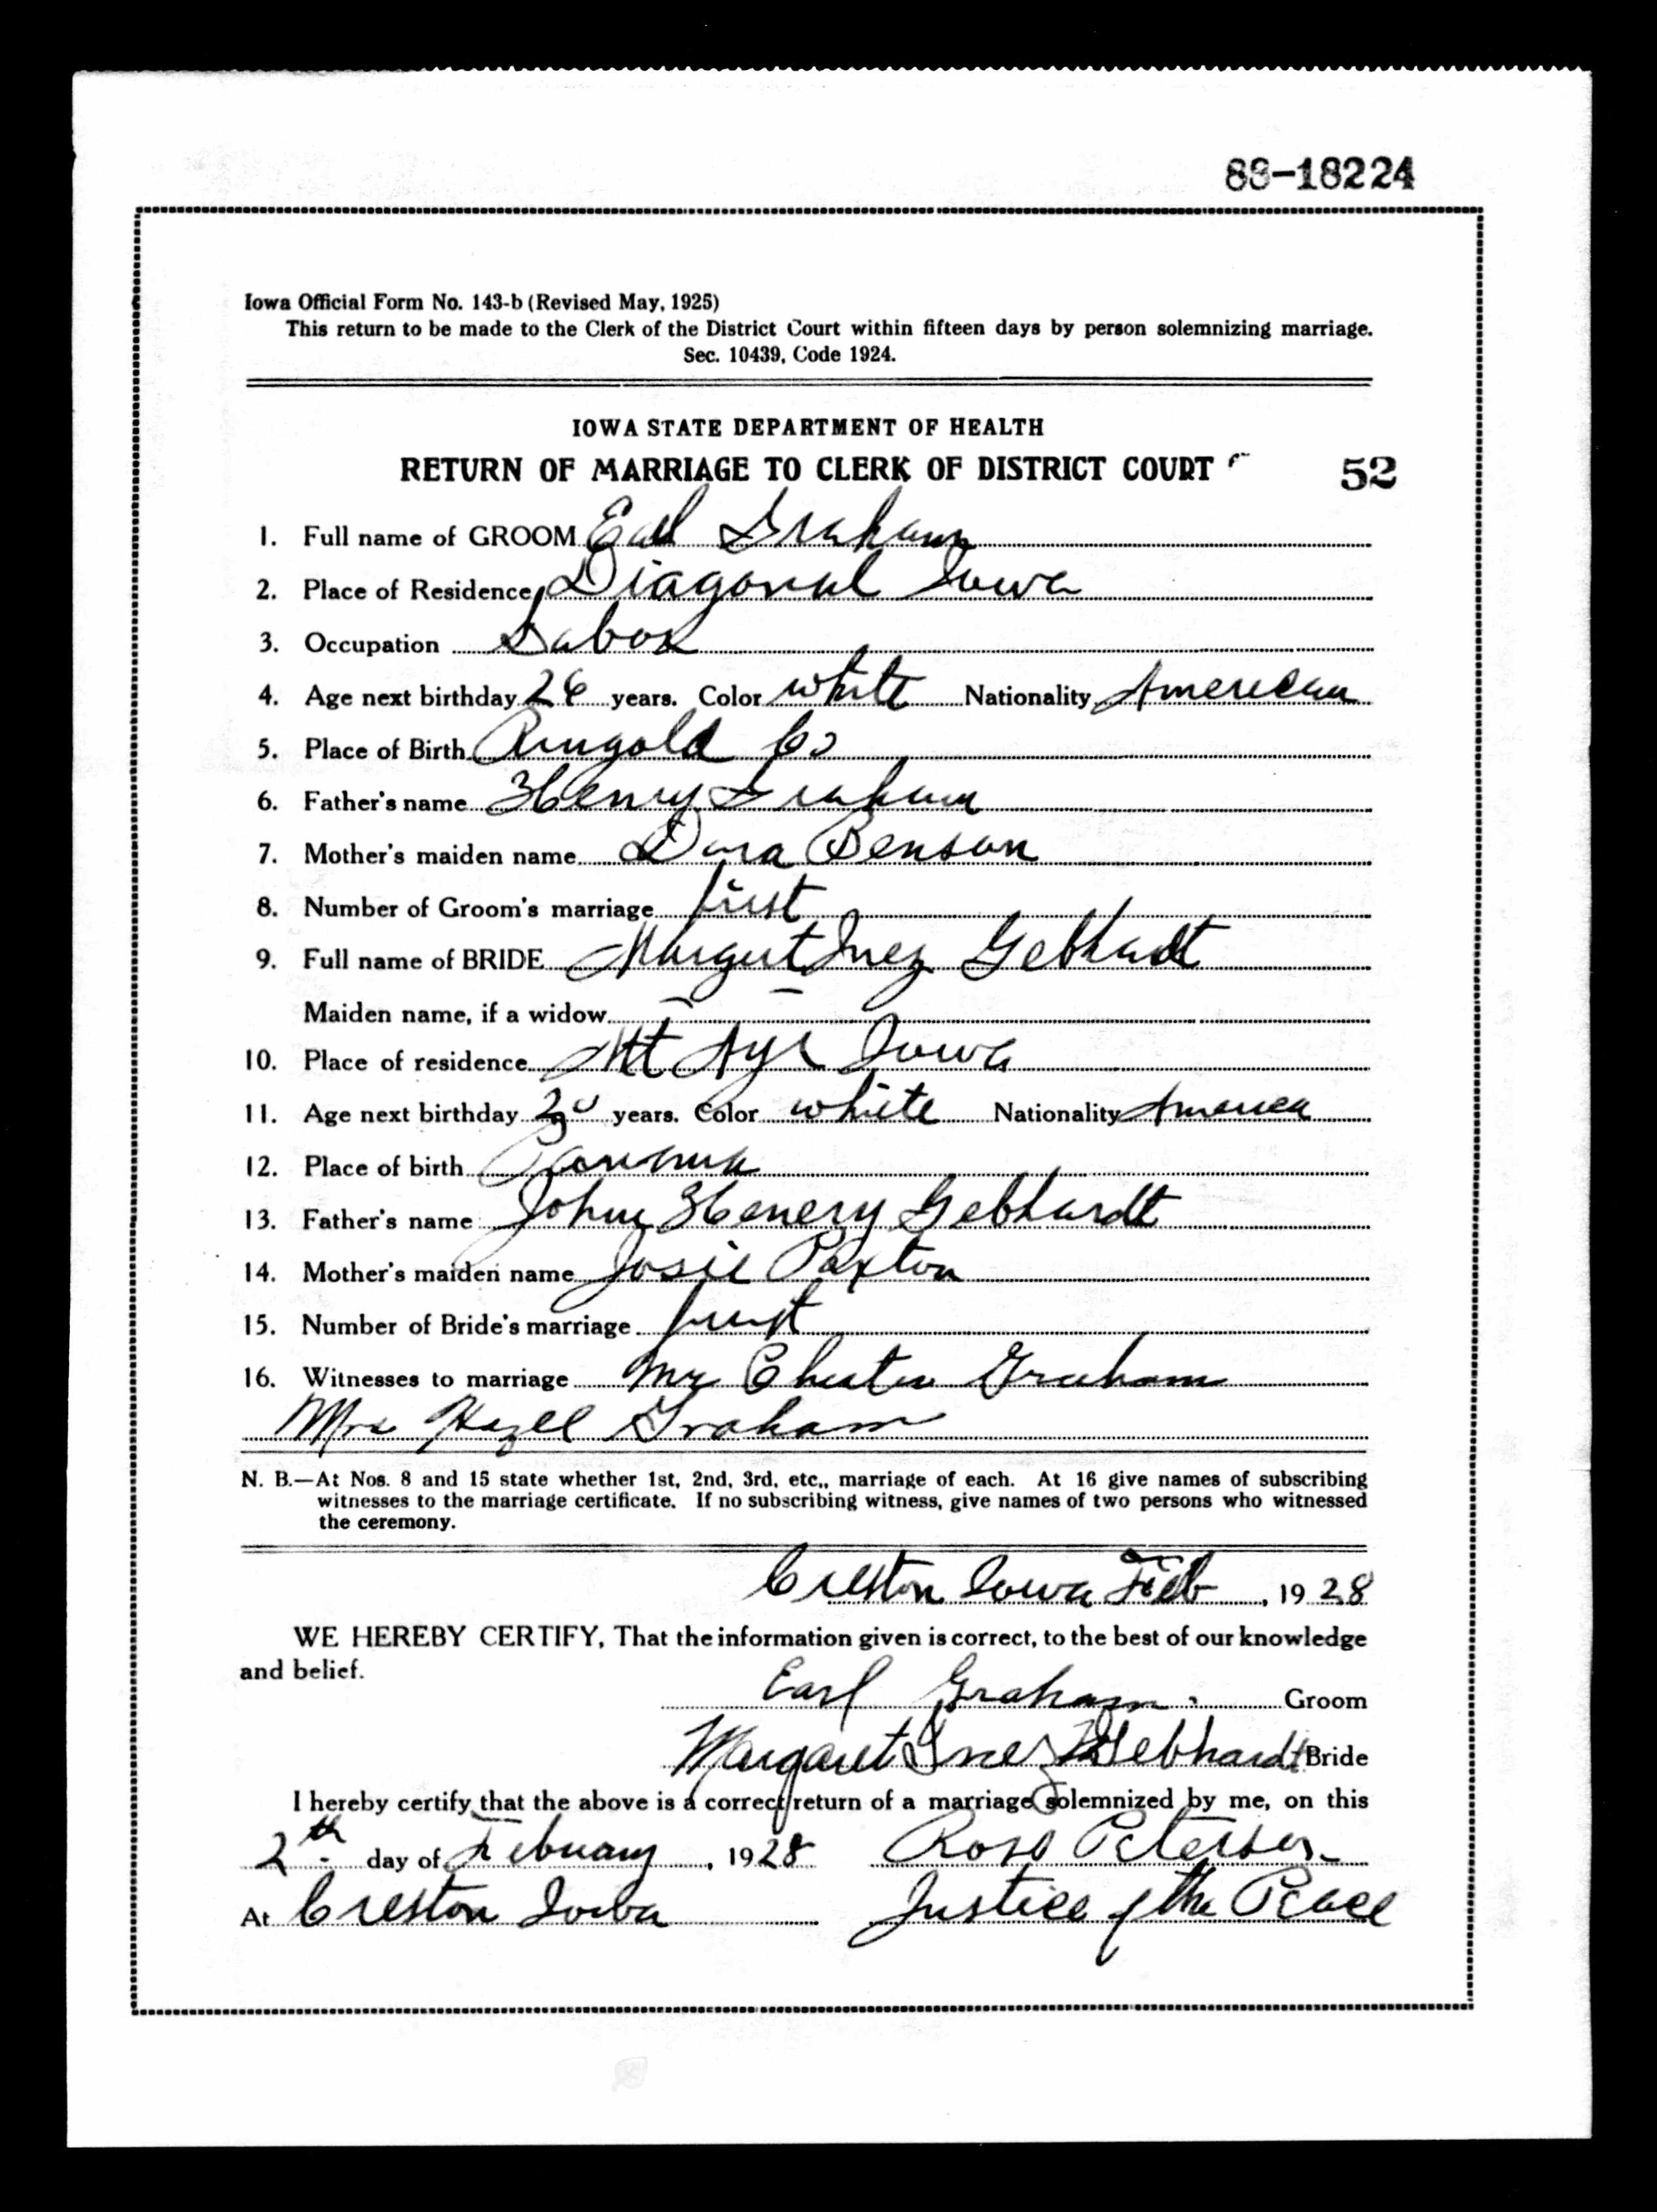 88-18224
Iowa Official Form No. 143-b (Revised May, 1925)
This return to be made to the Clerk of the District Court within fifteen days by person solemnizing marriage.
Sec. 10439, Code 1924.
IOWA STATE DEPARTMENT OF HEALTH
RETURN OF MARRIAGE TO CLERK OF DISTRICT COURT 52
1. Full name of GROOM Earl Graham
2. Place of Residence Diagonal Iowa
3. Occupation Labor
4. Age next birthday 26 years. Color white Nationality American
5. Place of Birth Ringold Co
6. Father's name Henry Graham
7. Mother's maiden name Dora Benson
8. Number of Groom's marriage first
9. Full name of BRIDE Margret Inez Gebhardt
Maiden name, if a widow
10. Place of residence Mt Ayr Iowa
11. Age next birthday 20 years. Color white Nationality America
12. Place of birth
13. Father's name John Henery Gebhardt
14. Mother's maiden name Josie Paxton
15. Number of Bride's marriage first
16. Witnesses to marriage Mr Chester Graham
Mrs Hazel Graham
N. B.—At Nos. 8 and 15 state whether 1st, 2nd, 3rd, etc., marriage of each. At 16 give names of subscribing
witnesses to the marriage certificate. If no subscribing witness, give names of two persons who witnessed
the ceremony.
Creston Iowa Feb 2, 1928
WE HEREBY CERTIFY, That the information given is correct, to the best of our knowledge
and belief.
Earl Graham. Groom
Margaret Inez Gebhardt Bride
I hereby certify that the above is a correct return of a marriage solemnized by me, on this
2th day of Febuary, 1928 Ross Peterson
At Creston Iowa Justice of the Peace